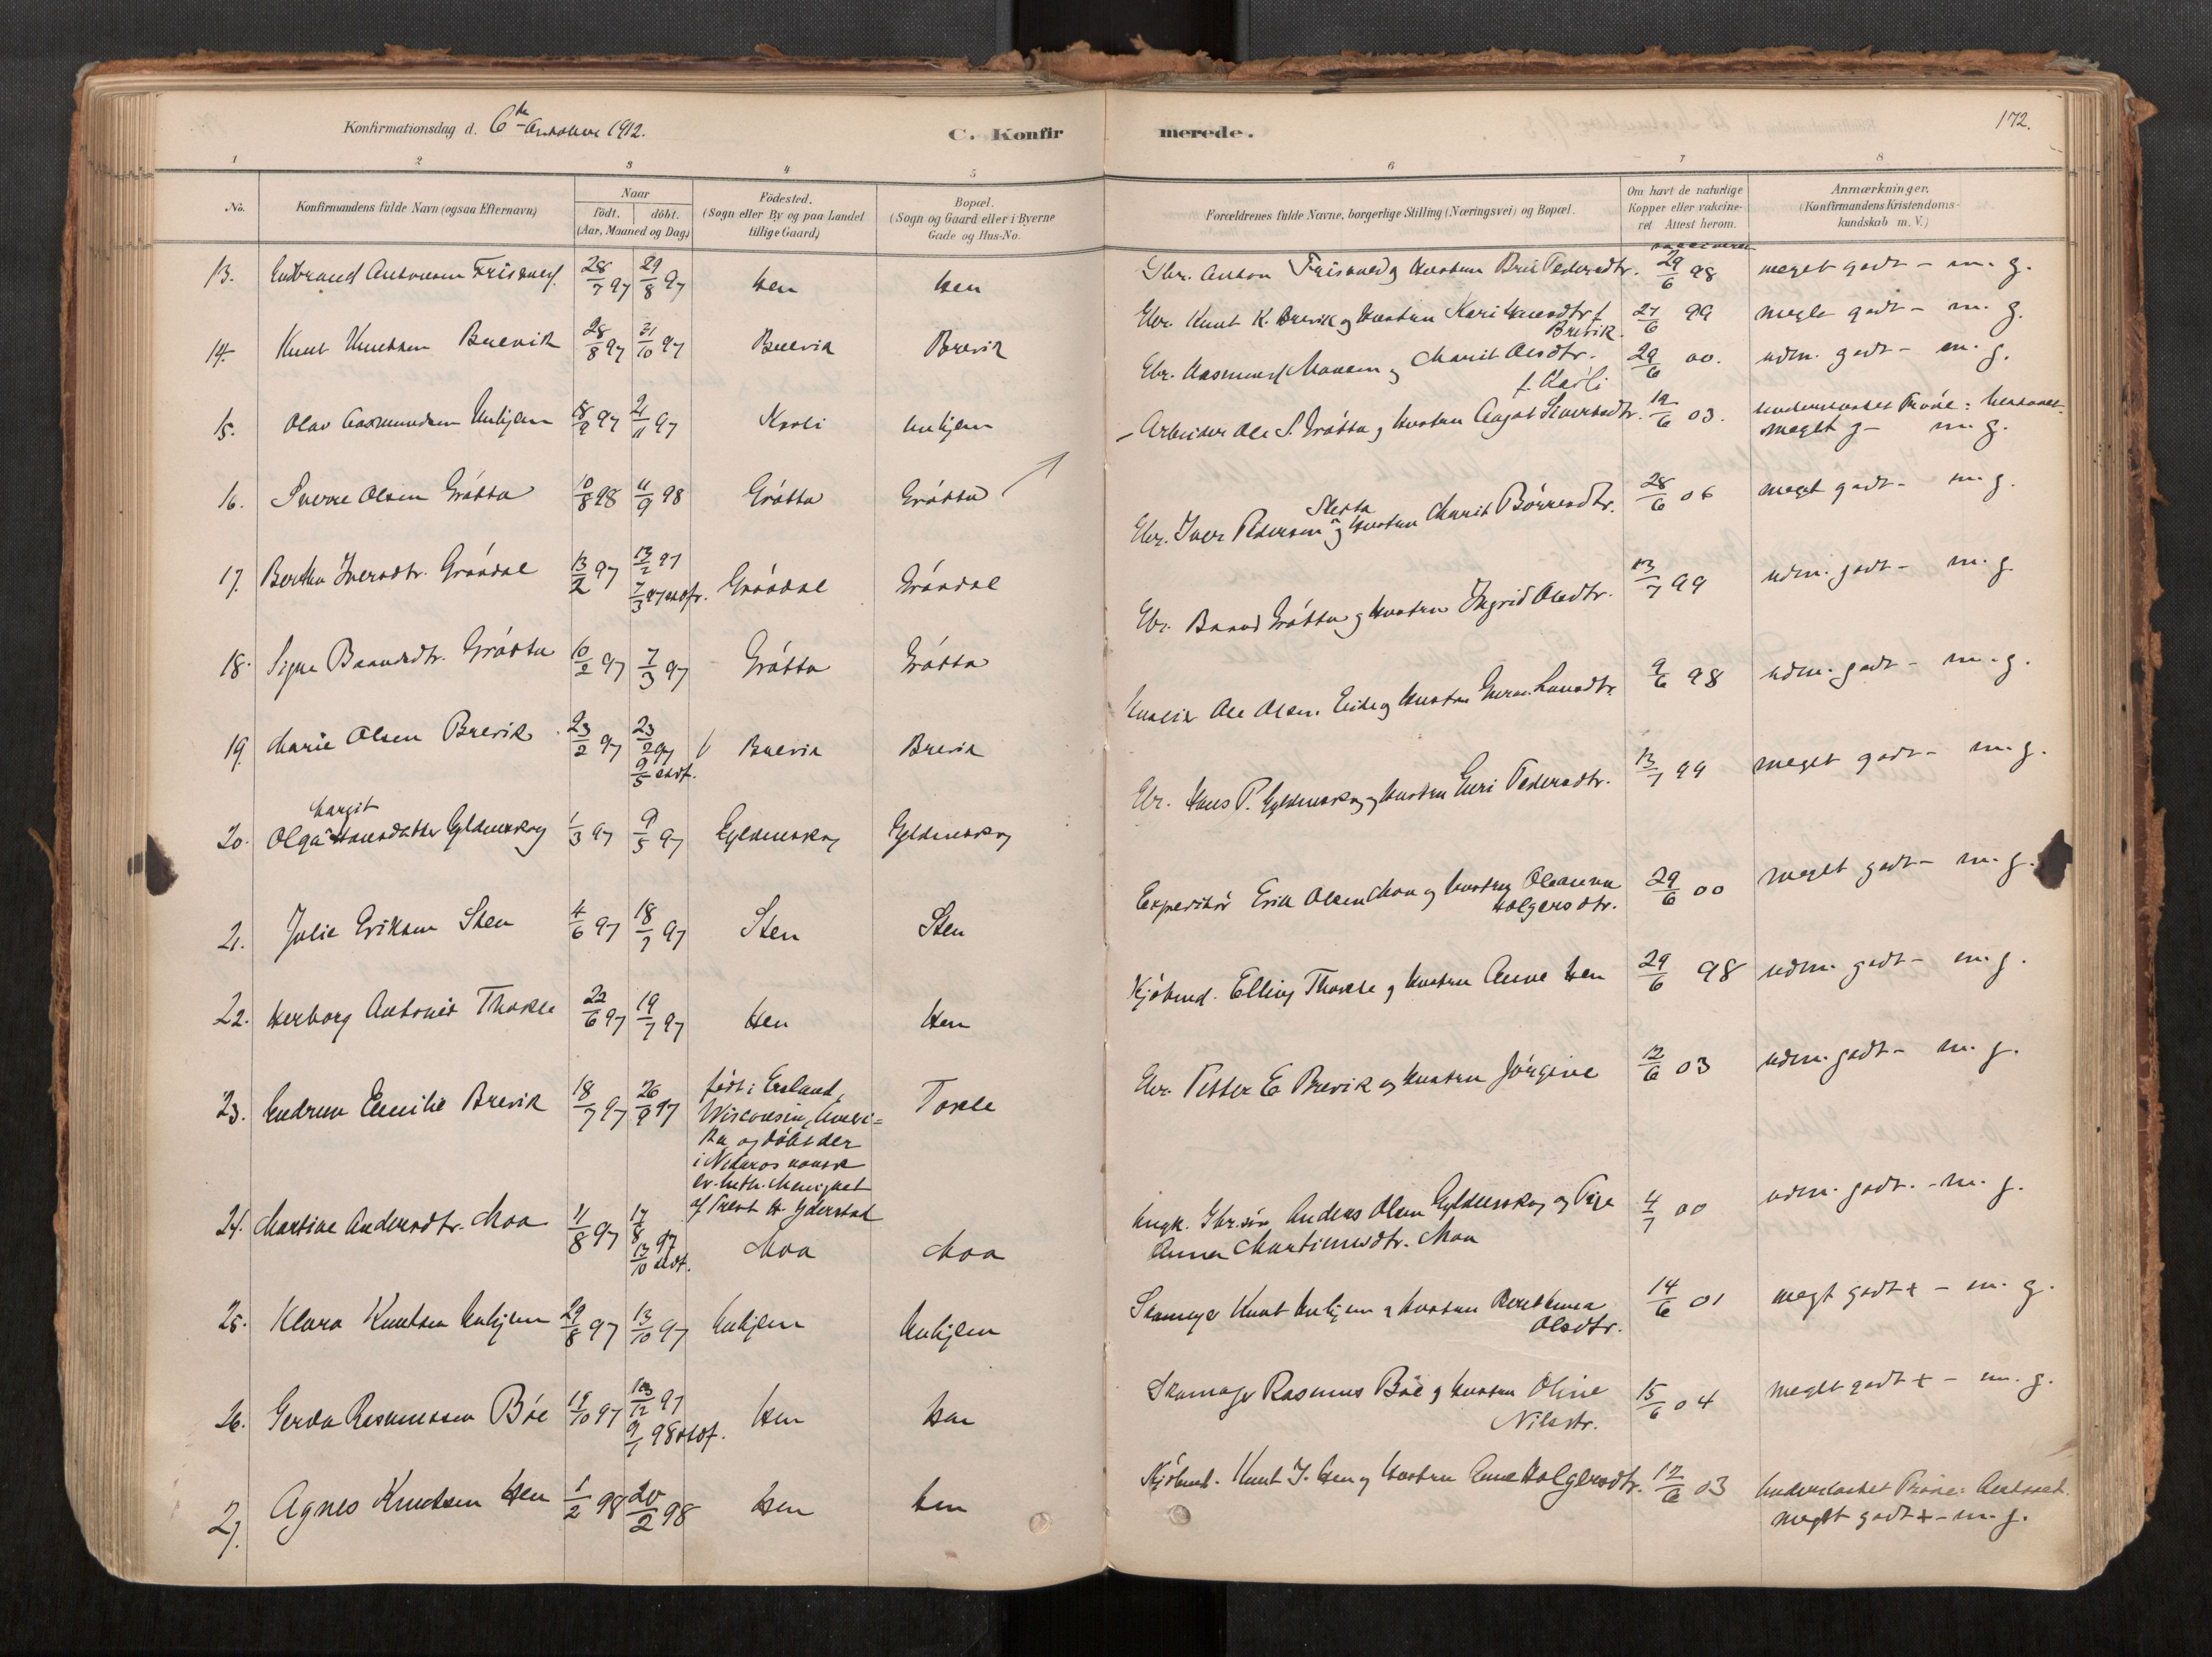 Konfirmationsdag d. 6te October 1912.
C. Konfirmerede.
172.
1 2 3 4 5 6 7 8
No.
Konfirmandens fulde Navn (ogsaa Efternavn)
Naar
födt. döbt.
(Aar, Maaned og Dag)
Födested.
(Sogn eller By og paa Landet
tillige Gaard)
Bopæl.
(Sogn og Gaard eller i Byerne
Gade og Hus-No.
Forældrenes fulde Navne, borgerlige Stilling (Næringsvei) og Bopæl.
Om havt de naturlige
Kopper eller vakcine-
ret Attest herom.
Anmærkninger.
(Konfirmandens Kristendoms-
kundskab m. V.)
13. Gudbrand Antonsen Frisvold 28/7 97 29/8 97 Hen Hen Gbr. Anton Frisvold og Hustru Brit Pedersdtr. 29/6 98 meget godt - m. g.
14. Knut Knutsen Brevik 28/8 97 31/10 97 Brevik Brevik Gbr. Knut K. Brevik og Hustru Kari Knudtr f. Brevik. 27/6 99 meget godt - m. g.
15. Olav Aasmundsen Unhjem 18/9 97 21/11 97 Karli Unhjem Gbr. Aasmund Monsen og Marit Olsdtr. f. Karli 29/6 00. udm. godt - m. g.
16. Sverre Olsen Grötta 10/8 98 11/9 98 Grötta Grötta Arbeider Ole S. Grötta og Hustru Aagot Siversdtr. 12/6 03. Underkastet Pröve: Antaget. meget g - m. g.
17. Bertha Iversdtr. Gröndal 13/2 97 13/2 97 7/3 97 stadf. Gröndal Gröndal Gbr. Iver Pedersen Sletta og Hustru Marit Börresdtr. 28/6 06 meget godt - m. g.
18. Signe Baardsdtr. Grötta 10/2 97 7/3 97 Grötta Grötta Gbr. Baard Grötta og Hustru Ingrid Olsdtr. 13/7 99 udm. godt - m. g.
19. Marie Olsen Brevik 23/2 97 23/2 97 9/5 stadf. Brevik Brevik Ole Olsen Eide og Hustru Larsdtr. 9/6 98 udm. godt - m. g.
20. Olga Margit Hansdatter Gyldenskog 1/3 97 9/5 97 Gyldenskog Gyldenskog Gbr. Hans P. Gyldenskog og Hustru Guri Pedersdtr. 13/7 99 meget godt - m. g.
21. Julie Eriksen Sten 4/6 97 18/7 97 Sten Sten Expeditör Erik Olsen Moa og Hustru Oleanna Holgersdtr. 29/6 00 meget godt - m. g.
22. Herborg Antonie Thokle 22/6 97 19/7 97 Hen Hen Kjöbmd. Elling Thokle og Hustru Anne Hen 29/6 98 udm. godt - m. g.
23. Gudrun Emilie Brevik 18/7 97 26/9 97 födt i Erland,
Wisconsin, Ameri=
ka og döbt der
i Nidaros norsk
ev. luth. Menighet
af Prest H. Gderstad
Tokle Gbr. Petter E Brevik og Hustru Jörgine 12/6 03 udm. godt - m. g.
24. Martine Andersdtr. Moa 11/8 97 17/8 97 13/10 stdf. Moa Moa Ungk. Gbr.sön Anders Olsen Gyldenskog og Pige
Anna Martinusdtr. Moa 4/7 00 udm. godt. - m. g.
25. Klara Knutsen Unhjem 29/8 97 13/10 97 Unhjem Unhjem Skomager Knut Unhjem og Hustru Beret Anna Olsdtr. 14/6 01 meget godt + - m. g.
26. Gerda Rasmussen Böe 19/10 97 13/12 97 9/1 98 stdf. Hen Hen Skomager Rasmus Böe og Hustru Oline Nilsdtr. 15/6 04 meget godt + - m. g.
27. Agnes Knudsen Hen 1/2 98 20/2 98 Hen Hen Kjöbmd. Knut J. Hen og Hustru Anne Holgersdtr. 12/6 03 Underkastet Pröve: Antaget.
meget godt + - m. g.